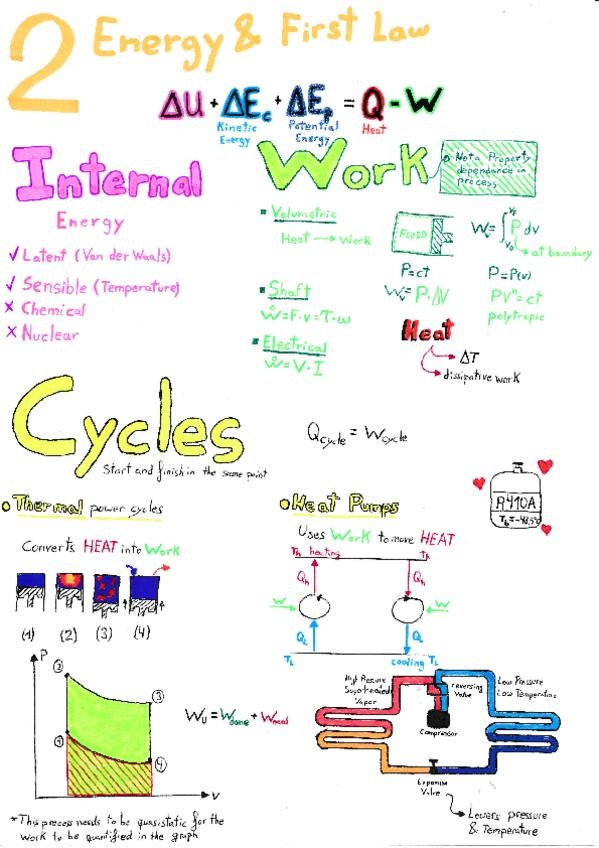 2 Energy & First Law
ΔU + ΔEc + ΔEp = Q - W
Kinetic Energy
Potential Energy
Heat
Internal
Energy
✓ Latent (Van der Waals)
✓ Sensible (Temperature)
× Chemical
× Nuclear
Work
Not a Property
dependance on
process
Volumetric
Heat → Work
FLUID
Wv = ∫ P dv
V₀
at boundary
P=ct
Wv = P·ΔV
P=P(v)
PVⁿ=ct
polytropic
Shaft
Ẇ=F·v=T·ω
Electrical
Ẇ=V·I
Heat
ΔT
dissipative work
Cycles
Start and finish in the same point
Qcycle = Wcycle
Thermal power cycles
Converts HEAT into Work
(1) (2) (3) (4)
P
2
3
1
4
V
*This process needs to be quasistatic for the
work to be quantified in the graph
Heat Pumps
R410A
Uses Work to move HEAT
Th heating
Th
Qh
Qh
W
W
QL
QL
TL
cooling TL
High Pressure
Superheated
Vapor
reversing
Valve
Low Pressure
Low Temperature
Compressor
Expansion
Valve
Lowers pressure
& Temperature